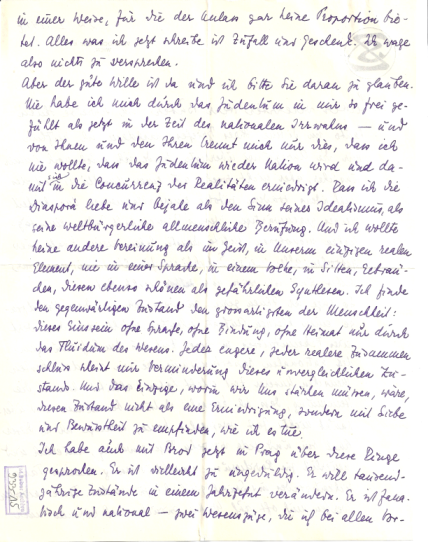 in einer Weise, für die der Anlass gar keine Proportion bie-
tet. Alles was ich jetzt schreibe ist Zufall und Geschenk. Ich wage
also nichts zu versprechen.
Aber der gute Wille ist da und ich bitte Sie daran zu glauben.
Nie habe ich mich durch das Judentum in mir so frei ge-
fühlt als jetzt in der Zeit des nationalen Irrwahns — und
von Ihnen und den Ihren trennt mich nur dies, dass ich
nie wollte, dass das Judentum wieder Nation wird und da-
mit sich in die Concurrenz der Realitäten erniedrigt. Dass ich die
Diaspora liebe und bejahe als den Sinn seines Idealismus, als
seine weltbürgerliche allmenschliche Berufung. Und ich wollte
keine andere Vereinung als im Geist, in unserem einzigen realen
Element, nie in einer Sprache, in einem Volke, in Sitten, Gebräu-
chen, diesen ebenso schönen als gefährlichen Synthesen. Ich finde
den gegenwärtigen Zustand den grossartigsten der Menschheit:
dieses Einssein ohne Sprache, ohne Bindung, ohne Heimat nur durch
das Fluidum des Wesens. Jeder engere, jeder realere Zusammen
schluss scheint mir Verminderung dieses unvergleichlichen Zu-
stands. Und das Einzige, worin wir uns stärken müssen, wäre,
diesen Zustand nicht als eine Erniedrigung, sondern mit Liebe
und Bewusstheit zu empfinden, wie ich es tue.
Ich habe auch mit Brod jetzt in Prag über diese Dinge
gesprochen. Er ist vielleicht zu ungeduldig. Er will tausend-
jährige Zustände in einem Jahrzehnt verändern. Er ist fana-
tisch und national — zwei Wesenszüge, die ich bei allen